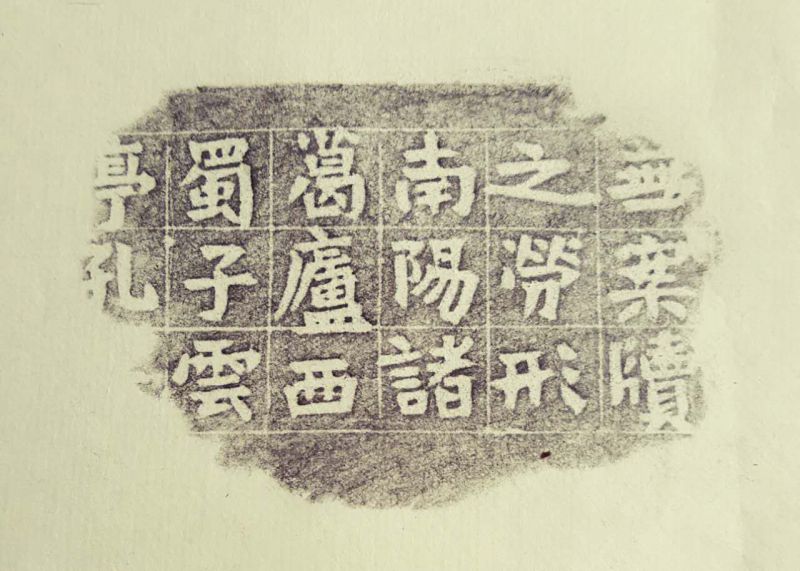 無案牘
之勞形
南陽諸
葛廬西
蜀子雲
亭孔